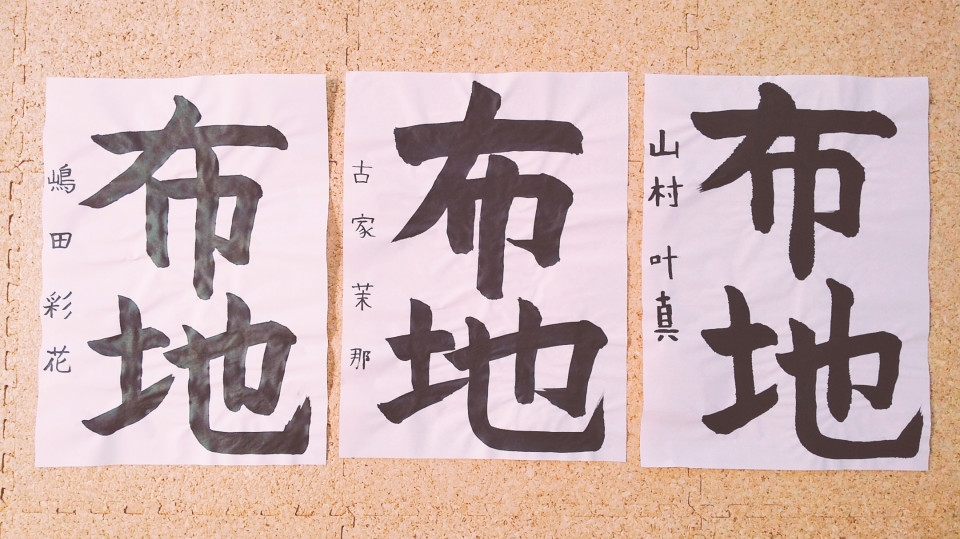 布地
嶋田彩花
布地
古家茉那
布地
山村 叶真